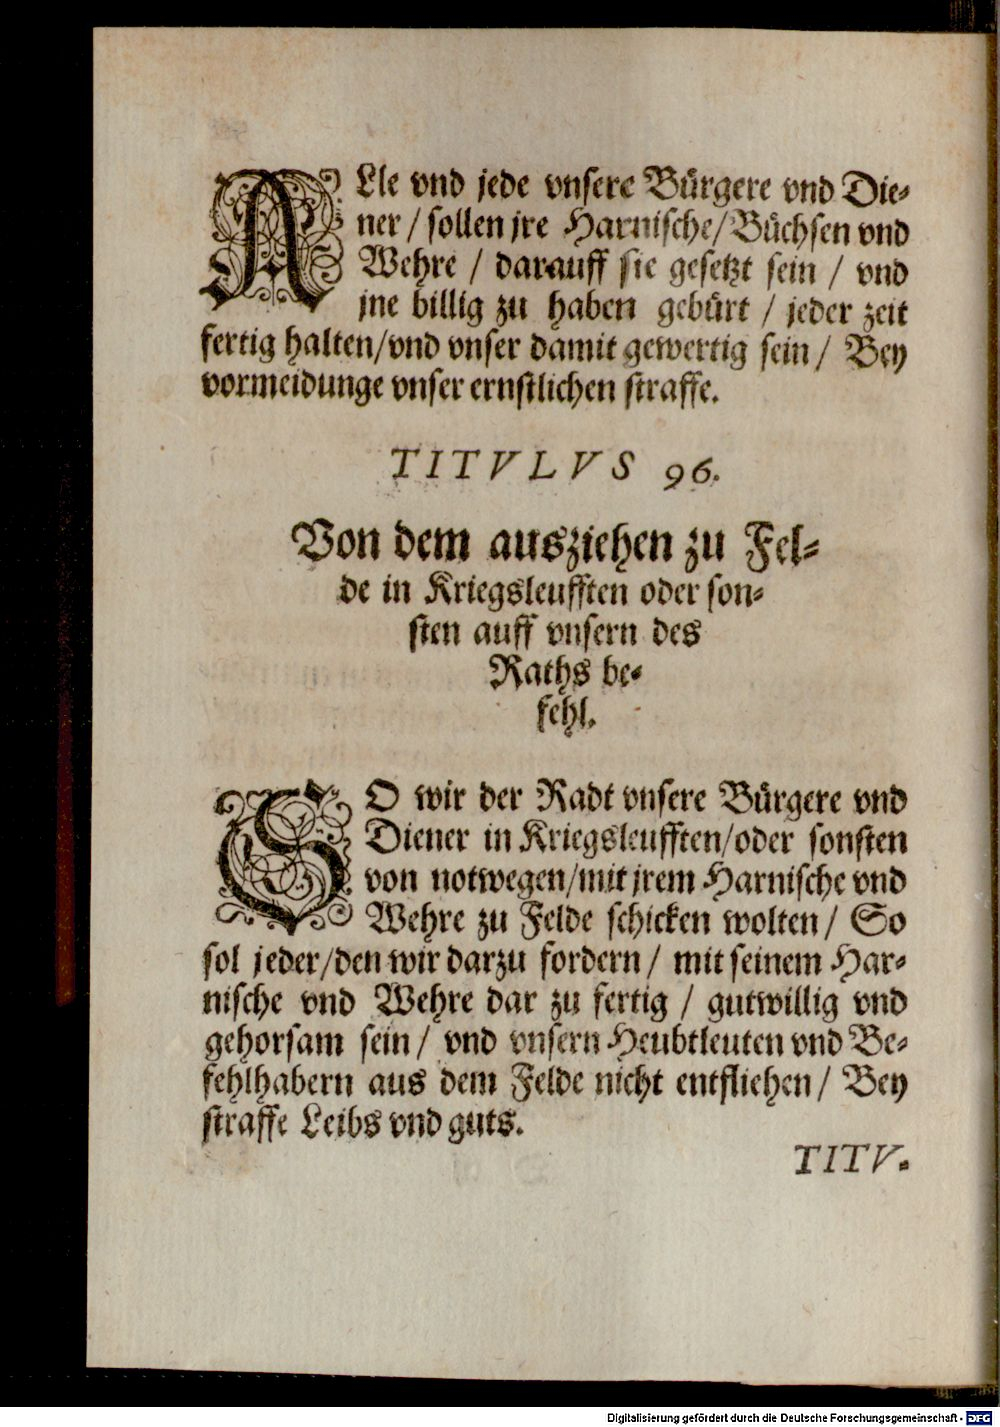 ALle vnd jede vnsere Bürgere vnd Die-
ner / sollen jre Harnische/Büchsen vnd
Wehre / darauff sie gesetzt sein / vnd
jne billig zu haben gebürt / jeder zeit
fertig halten/vnd vnser damit gewertig sein / Bey
vormeidunge vnser ernstlichen straffe.
TITVLVS 96.
Von dem ausziehen zu Fel-
de in Kriegsleufften oder son-
sten auff vnsern des
Raths be-
fehl.
SO wir der Radt vnsere Bürgere vnd
Diener in Kriegsleufften/oder sonsten
von notwegen/mit jrem Harnische vnd
Wehre zu Felde schicken wolten / So
sol jeder/den wir darzu fordern / mit seinem Har-
nische vnd Wehre dar zu fertig / gutwillig vnd
gehorsam sein / vnd vnsern Heubtleuten vnd Be-
fehlhabern aus dem Felde nicht entfliehen / Bey
straffe Leibs vnd guts.
TITV-
Digitalisierung gefördert durch die Deutsche Forschungsgemeinschaft - DFG